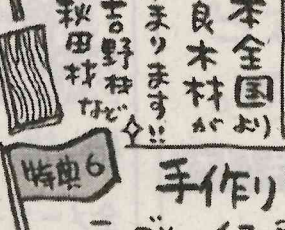 本全国より
良木材が
まります!!
吉野材
秋田材など
特典6
手作り